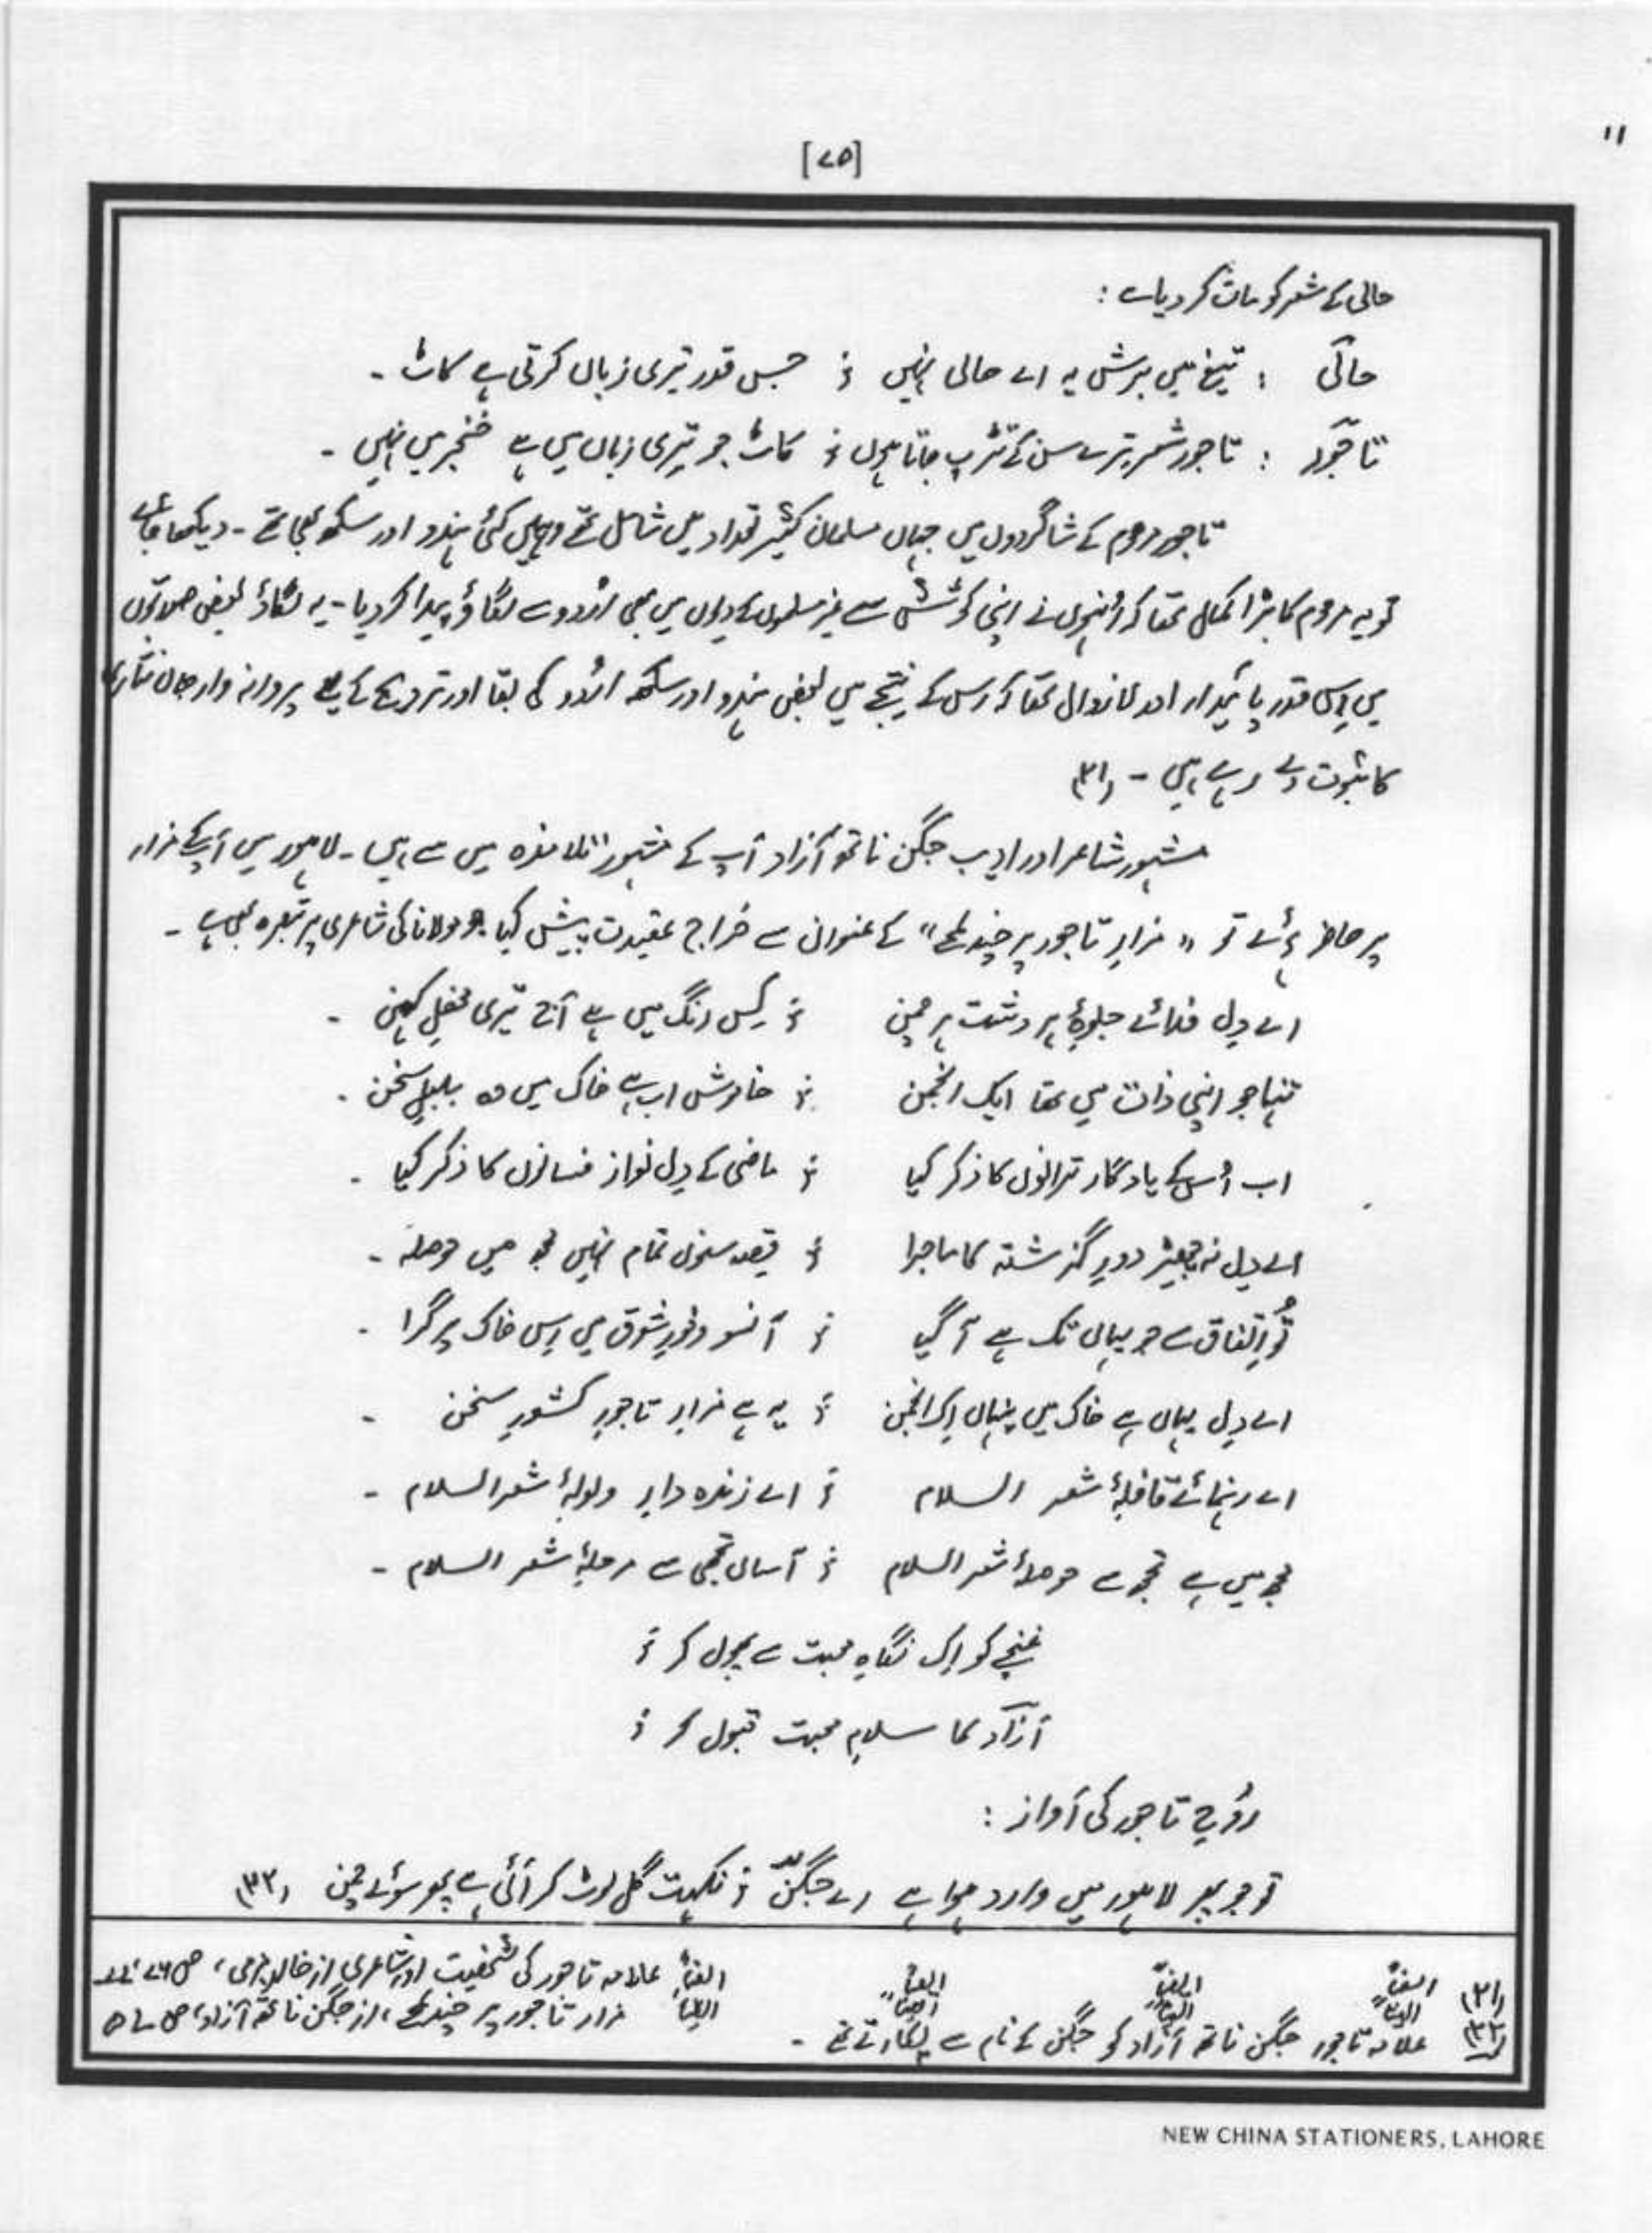 "
[۷۵]
حالی کے شعر کو مات کر دیا ہے :
حالی : تیغ میں برش یہ اے حالی نہیں ؛ جس قدر تیری زباں کرتی ہے کاٹ ۔
تاجور : تاجور شعر ترے سن کے تڑپ جاتا ہوں ؛ کاٹ جو تیری زباں میں ہے خنجر میں نہیں ۔
تاجور مرحوم کے شاگردوں میں جہاں مسلمان کثیر تعداد میں شامل تھے وہیں کئی ہندو اور سکھ بھی تھے ۔ دیکھا جائے
تو یہ مرحوم کا بڑا کمال تھا کہ اُنہوں نے اپنی کوشش سے غیر مسلموں کے دِلوں میں بھی اُردو سے لگاؤ پیدا کر دیا ۔ یہ لگاؤ بعض صورتوں
میں اِس قدر پائیدار اور لازوال تھا کہ اس کے نتیجے میں بعض ہندو اور سکھ اُردو کی بقا اور ترویج کے لیے پروانہ وار جاں نثاری
کا ثبوت دے رہے ہیں ۔ (۳۱)
مشہور شاعر اور ادیب جگن ناتھ آزاد آپ کے مشہور تلامذہ میں سے ہیں ۔ لاہور میں آپ کے مزار
پر حاضر ہوئے تو "مزارِ تاجور پر چند لمحے" کے عنوان سے خراج عقیدت پیش کیا جو مولانا کی شاعری پر تبصرہ بھی ہے ۔
اے دِل فدائے جلوۂ ہر دشت ہر چمن ؛ کِس رنگ میں ہے آج تیری محفلِ کہن ۔
تنہا جو اپنی ذات میں تھا ایک انجمن ؛ خاموش اب ہے خاک میں وہ بلبلِ سخن ۔
اب اُس کے یادگار ترانوں کا ذکر کیا ؛ ماضی کے دِل نواز فسانوں کا ذکر کیا ۔
اے دِل نہ چھیڑ دورِ گذشتہ کا ماجرا ؛ قصہ سنوں تمام نہیں مجھ میں حوصلہ ۔
تُو اِتفاق سے جو یہاں تک ہے آ گیا ؛ آنسو وفورِ شوق میں اِس خاک پر گرا ۔
اے دِل یہاں ہے خاک میں پنہاں اِک انجمن ؛ یہ ہے مزارِ تاجورِ کشورِ سخن ۔
اے رہنمائے قافلۂ شعر السلام ؛ اے زندہ دارِ ولولۂ شعر السلام ۔
مجھ میں ہے تجھ سے حوصلۂ شعر السلام ؛ آساں تجھی سے مرحلۂ شعر السلام ۔
غنچے کو اِک نگاہِ محبت سے پھول کر ؛
آزاد کا سلامِ محبت قبول کر ؛
رُوحِ تاجور کی آواز :
تو جو پھر لاہور میں وارد ہوا ہے اے جگن ؛ نکہت گل لوٹ کر آئی ہے پھر سوئے چمن (۳۲)
(۳۱) ایضاً ایضاً ایضاً ایضاً علامہ تاجور کی شخصیت اور شاعری از خالد بزمی، ص ۷۶، ۷۷
(۳۲) ایضاً ایضاً ایضاً ایضاً مزار تاجور پر چند لمحے، از جگن ناتھ آزاد، ص ۵۷
علامہ تاجور جگن ناتھ آزاد کو جگن کے نام سے پکارتے تھے ۔
NEW CHINA STATIONERS, LAHORE